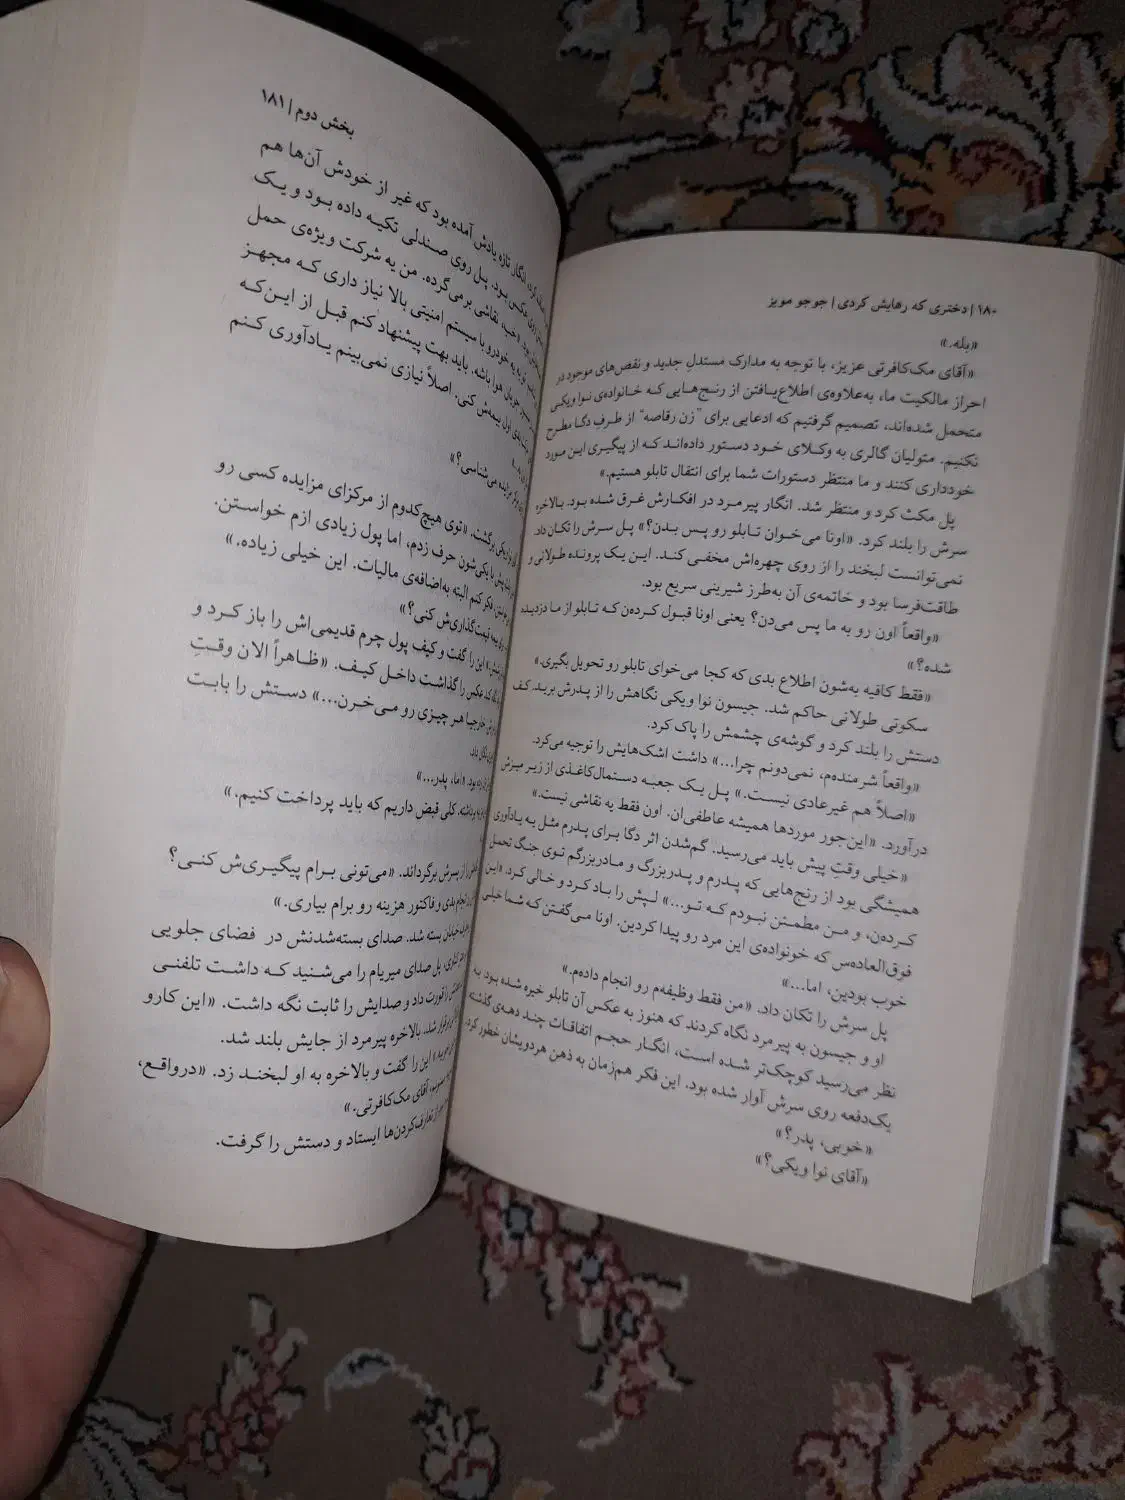 ۱۸۰ | دختری که رهایش کردی | جوجو مویز
«بله.»
«آقای مک‌کافرتی عزیز، با توجه به مدارک مستدلِ جدید و نقص‌های موجود در
احراز مالکیت ما، به‌علاوه‌ی اطلاع‌یافتن از رنج‌هایی که خانواده‌ی نوا ویکی
متحمل شده‌اند، تصمیم گرفتیم که ادعایی برای "زن رقاصه" از طرفِ دگا مطرح
نکنیم. متولیان گالری به وکلای خود دستور داده‌اند که از پیگیری این مورد
خودداری کنند و ما منتظر دستورات شما برای انتقال تابلو هستیم.»
پل مکث کرد و منتظر شد. انگار پیرمرد در افکارش غرق شده بود. بالاخره
سرش را بلند کرد. «اونا می‌خوان تابلو رو پس بدن؟» پل سرش را تکان داد.
نمی‌توانست لبخند را از روی چهره‌اش مخفی کند. این یک پرونده طولانی و
طاقت‌فرسا بود و خاتمه‌ی آن به‌طرز شیرینی سریع بود.
«واقعاً اون رو به ما پس می‌دن؟ یعنی اونا قبول کرده‌ن که تابلو از ما دزدیده
شده؟»
«فقط کافیه به‌شون اطلاع بدی که کجا می‌خوای تابلو رو تحویل بگیری.»
سکوتی طولانی حاکم شد. جیسون نوا ویکی نگاهش را از پدرش برید. کف
دستش را بلند کرد و گوشه‌ی چشمش را پاک کرد.
«واقعاً شرمنده‌م، نمی‌دونم چرا...» داشت اشک‌هایش را توجیه می‌کرد.
«اصلاً هم غیرعادی نیست.» پل یک جعبه دستمال‌کاغذی از زیر میزش
درآورد. «این‌جور موردها همیشه عاطفی‌ان. اون فقط یه نقاشی نیست.»
«خیلی وقتِ پیش باید می‌رسید. گم‌شدن اثر دگا برای پدرم مثل یه یادآوری
همیشگی بود از رنج‌هایی که پدرم و پدربزرگ و مادربزرگم توی جنگ تحمل
کرده‌ن، و من مطمئن نبودم که تو...» لپش را باد کرد و خالی کرد. «این
فوق‌العاده‌س که خونواده‌ی این مرد رو پیدا کردین. اونا می‌گفتن که شما خیلی
خوب بودین، اما...»
پل سرش را تکان داد. «من فقط وظیفه‌م رو انجام داده‌م.»
او و جیسون به پیرمرد نگاه کردند که هنوز به عکس آن تابلو خیره شده بود. به
نظر می‌رسید کوچک‌تر شده است، انگار حجم اتفاقات چند دهه‌ی گذشته
یک‌دفعه روی سرش آوار شده بود. این فکر هم‌زمان به ذهن هردویشان خطور کرد.
«خوبی، پدر؟»
«آقای نوا ویکی؟»
بخش دوم | ۱۸۱
انگار تازه یادش آمده بود که غیر از خودش آن‌ها هم
بود. پل روی صندلی تکیه داده بود و یک
نقاشی برمی‌گرده. من یه شرکت ویژه‌ی حمل
به خودرو با سیستم امنیتی بالا نیاز داری که مجهز
جریان هوا باشه. باید بهت پیشنهاد کنم قبل از این‌که
اول بیمه‌ش کنی. اصلاً نیازی نمی‌بینم یادآوری کنم
می‌شناسی؟»
برگشت. «توی هیچ‌کدوم از مرکزای مزایده کسی رو
با یکی‌شون حرف زدم، اما پول زیادی ازم خواستن.
فکر کنم البته به‌اضافه‌ی مالیات. این خیلی زیاده.»
قیمت‌گذاری‌ش کنی؟»
این را گفت و کیف پول چرم قدیمی‌اش را باز کرد و
عکس را گذاشت داخل کیف. «ظاهراً الان وقتِ
هر چیزی رو می‌خرن...» دستش را بابت
تکان داد.
بود. «اما، پدر...»
کلی قبض داریم که باید پرداخت کنیم.»
از پسرش برگرداند. «می‌تونی برام پیگیری‌ش کنی؟
انجام بدی و فاکتور هزینه رو برام بیاری.»
خیابان بسته شد. صدای بسته‌شدنش در فضای جلویی
پل صدای میریام را می‌شنید که داشت تلفنی
قورت داد و صدایش را ثابت نگه داشت. «این کارو
بالاخره پیرمرد از جایش بلند شد.
این را گفت و بالاخره به او لبخند زد. «درواقع،
آقای مک‌کافرتی.»
از تعارف‌کردن‌ها ایستاد و دستش را گرفت.